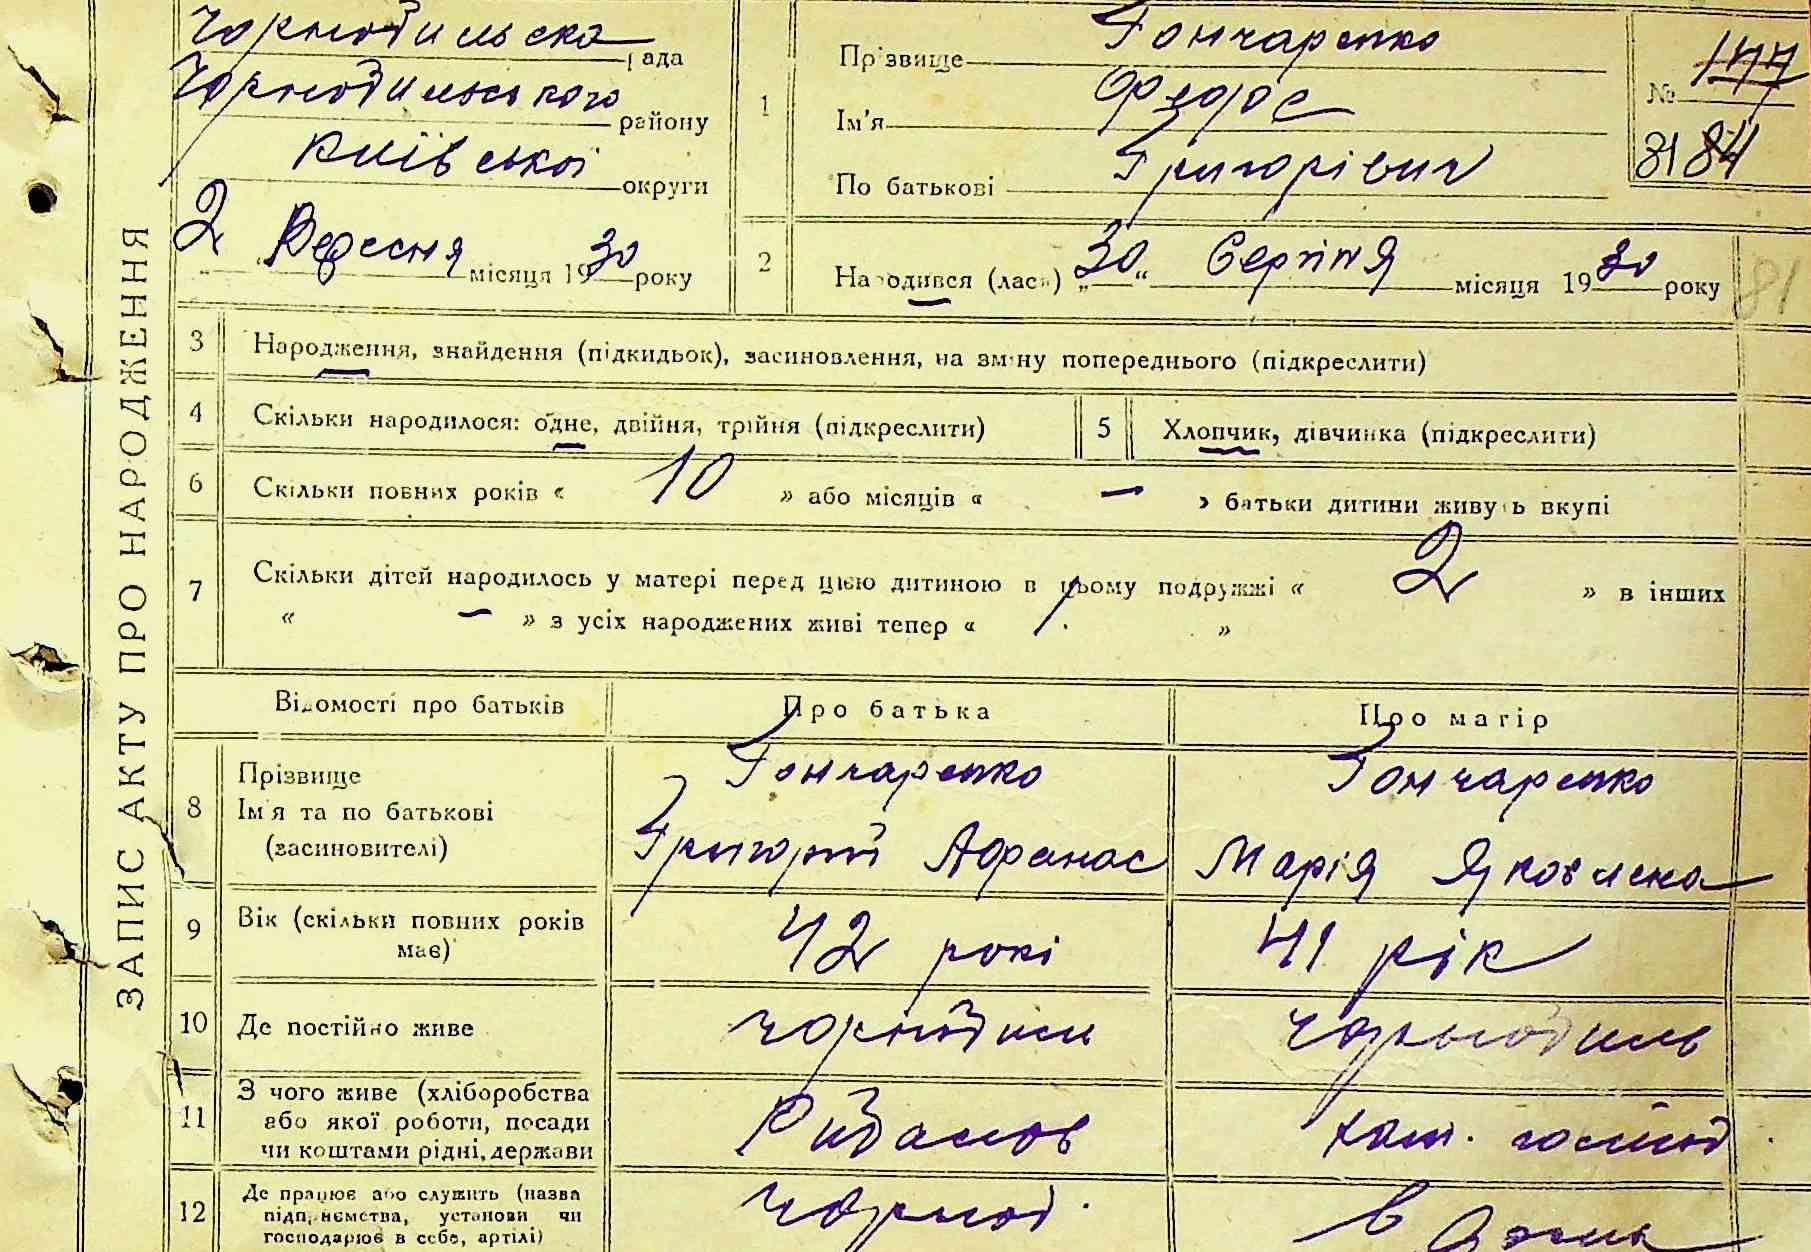 ЗАПИС АКТУ ПРО НАРОДЖЕННЯ
Чорнобильска рада
Чорнобильського району
Київської округи
2 Вересня місяця 1930 року
1
Прізвище Гончаренко
Ім'я Федос
По батькові Григорівич
№ 177
81 84
2
Народився (лась) „30“ Серпня місяця 1930 року
81
3 Народження, знайдення (підкидьок), засиновлення, на зміну попереднього (підкреслити)
4 Скільки народилося: одне, двійня, трійня (підкреслити)
5 Хлопчик, дівчинка (підкреслити)
6 Скільки повних років « 10 » або місяців « — » батьки дитини живуть вкупі
7 Скільки дітей народилось у матері перед цією дитиною в цьому подружжі « 2 » в інших
« — » з усіх народжених живі тепер « »
Відомості про батьків Про батька Про матір
8 Прізвище
Ім'я та по батькові
(засиновителі)
Гончаренко
Григорій Афанас
Гончаренко
Марія Яковлена
9 Вік (скільки повних років
має)
42 рокі
41 рік
10 Де постійно живе
Чорнобили
Чорнобиль
11 З чого живе (хліборобства
або якої роботи, посади
чи коштами рідні, держави
Рибалов
хат. господ.
12 Де працює або служить (назва
підприємства, установи чи
господарює в себе, артілі)
Чорноб.
в